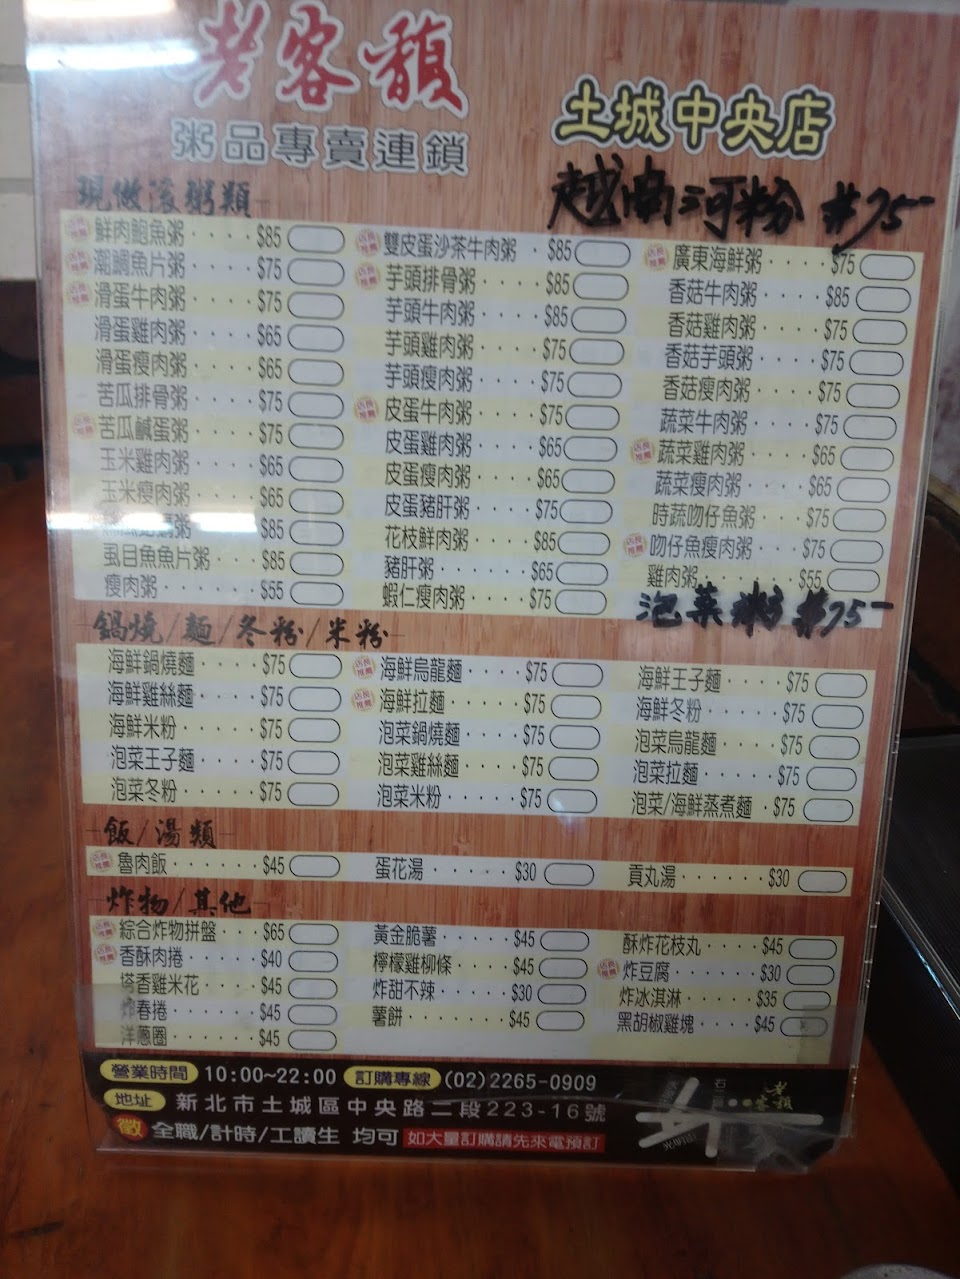 老客馥
粥品專賣連鎖
土城中央店
越南河粉 $75-
現做滾粥類
店長推薦 鮮肉鮑魚粥‧‧‧‧$85
店長推薦 潮鯛魚片粥‧‧‧‧$75
店長推薦 滑蛋牛肉粥‧‧‧‧$75
滑蛋雞肉粥‧‧‧‧$65
滑蛋瘦肉粥‧‧‧‧$65
苦瓜排骨粥‧‧‧‧$75
店長推薦 苦瓜鹹蛋粥‧‧‧‧$75
玉米雞肉粥‧‧‧‧$65
玉米瘦肉粥‧‧‧‧$65
粥‧‧‧‧$85
虱目魚魚片粥‧‧‧$85
瘦肉粥‧‧‧‧‧‧$55
店長推薦 雙皮蛋沙茶牛肉粥‧$85
店長推薦 芋頭排骨粥‧‧‧‧$85
芋頭牛肉粥‧‧‧‧$85
芋頭雞肉粥‧‧‧‧$75
芋頭瘦肉粥‧‧‧‧$75
店長推薦 皮蛋牛肉粥‧‧‧‧$75
皮蛋雞肉粥‧‧‧‧$65
皮蛋瘦肉粥‧‧‧‧$65
皮蛋豬肝粥‧‧‧‧$75
花枝鮮肉粥‧‧‧‧$85
豬肝粥‧‧‧‧‧‧$65
蝦仁瘦肉粥‧‧‧‧$75
店長推薦 廣東海鮮粥‧‧‧‧$75
香菇牛肉粥‧‧‧‧$85
香菇雞肉粥‧‧‧‧$75
香菇芋頭粥‧‧‧‧$75
香菇瘦肉粥‧‧‧‧$75
蔬菜牛肉粥‧‧‧‧$75
店長推薦 蔬菜雞肉粥‧‧‧‧$65
蔬菜瘦肉粥‧‧‧‧$65
時蔬吻仔魚粥‧‧‧$75
店長推薦 吻仔魚瘦肉粥‧‧‧$75
雞肉粥‧‧‧‧‧‧$55
泡菜粥 $75-
鍋燒/麵/冬粉/米粉
海鮮鍋燒麵‧‧‧‧$75
海鮮雞絲麵‧‧‧‧$75
海鮮米粉‧‧‧‧‧$75
泡菜王子麵‧‧‧‧$75
泡菜冬粉‧‧‧‧‧$75
店長推薦 海鮮烏龍麵‧‧‧‧$75
店長推薦 海鮮拉麵‧‧‧‧‧$75
泡菜鍋燒麵‧‧‧‧$75
泡菜雞絲麵‧‧‧‧$75
泡菜米粉‧‧‧‧‧$75
海鮮王子麵‧‧‧‧$75
海鮮冬粉‧‧‧‧‧$75
泡菜烏龍麵‧‧‧‧$75
泡菜拉麵‧‧‧‧‧$75
泡菜/海鮮蒸煮麵‧$75
飯/湯類
店長推薦 魯肉飯‧‧‧‧‧‧$45
蛋花湯‧‧‧‧‧‧$30
貢丸湯‧‧‧‧‧‧$30
炸物/其他
店長推薦 綜合炸物拼盤‧‧‧$65
店長推薦 香酥肉捲‧‧‧‧‧$40
塔香雞米花‧‧‧‧$45
炸春捲‧‧‧‧‧‧$45
洋蔥圈‧‧‧‧‧‧$45
黃金脆薯‧‧‧‧‧$45
檸檬雞柳條‧‧‧‧$45
炸甜不辣‧‧‧‧‧$30
薯餅‧‧‧‧‧‧‧$45
酥炸花枝丸‧‧‧‧$45
店長推薦 炸豆腐‧‧‧‧‧‧$30
炸冰淇淋‧‧‧‧‧$35
黑胡椒雞塊‧‧‧‧$45
營業時間 10:00~22:00 訂購專線 (02)2265-0909
地址 新北市土城區中央路二段223-16號
徵 全職/計時/工讀生 均可 如大量訂購請先來電預訂
老客馥